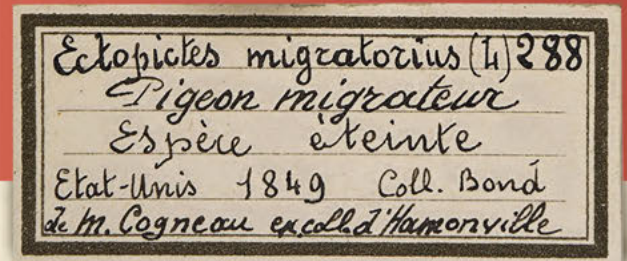 Ectopictes migratorius (L) 288
Pigeon migrateur
Espèce èteinte
Etat-Unis 1849 Coll. Bond
de M. Cogneau ex coll. d'Hamonville